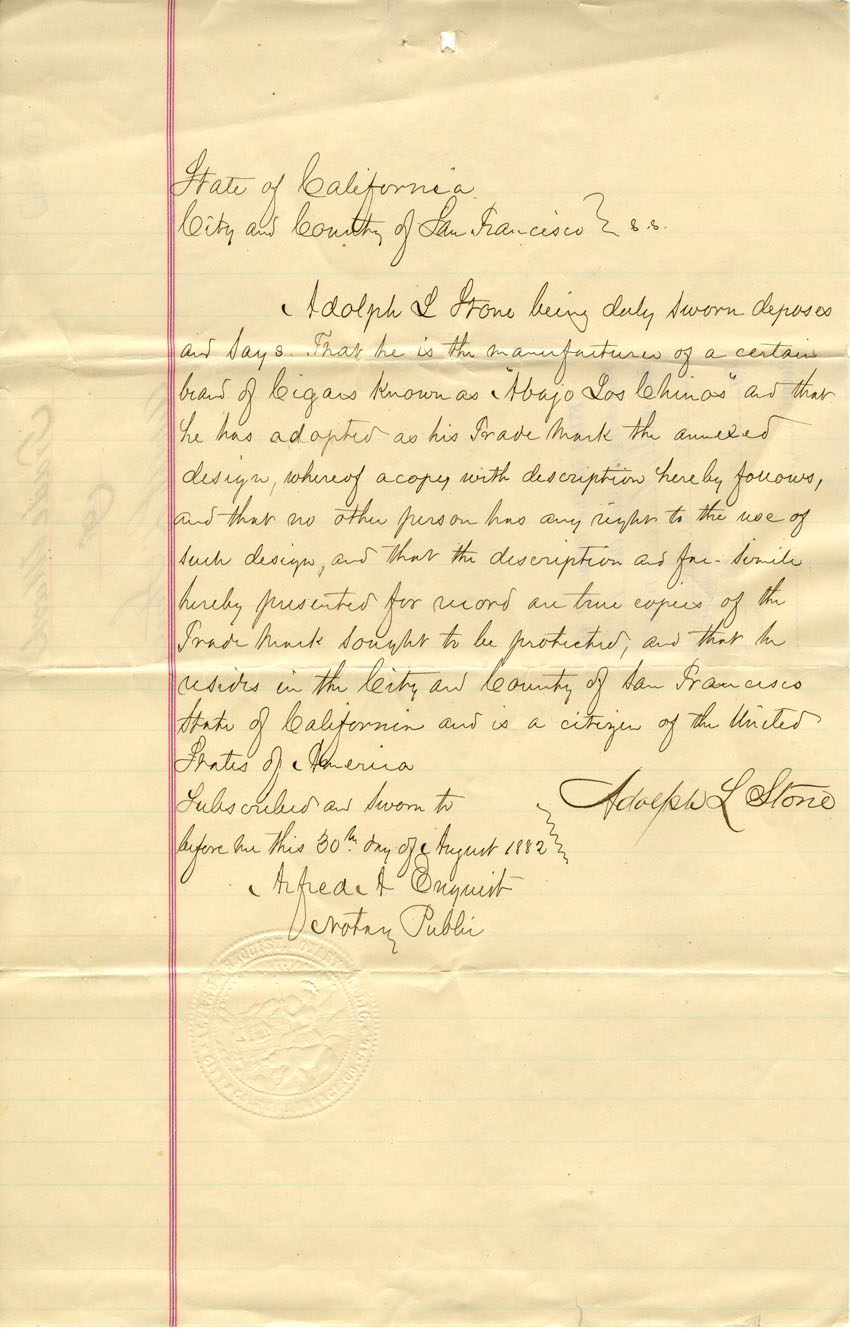 State of California
City and County of San Francisco } s.s.
Adolph L Stone being duly sworn deposes
and says. That he is the manufacturer of a certain
brand of Cigars Known as "Abajo Los Chinos" and that
he has adopted as his Trade Mark the annexed
design, whereof a copy with description hereby follows,
and that no other person has any right to the use of
such design, and that the description and fac-simile
hereby presented for record are true copies of the
Trade Mark sought to be protected, and that he
resides in the City and County of San Francisco
State of California and is a citizen of the United
States of America
Adolph L Stone
Subscribed and sworn to
before me this 30th day of August 1882
Alfred A Enquist
Notary Public